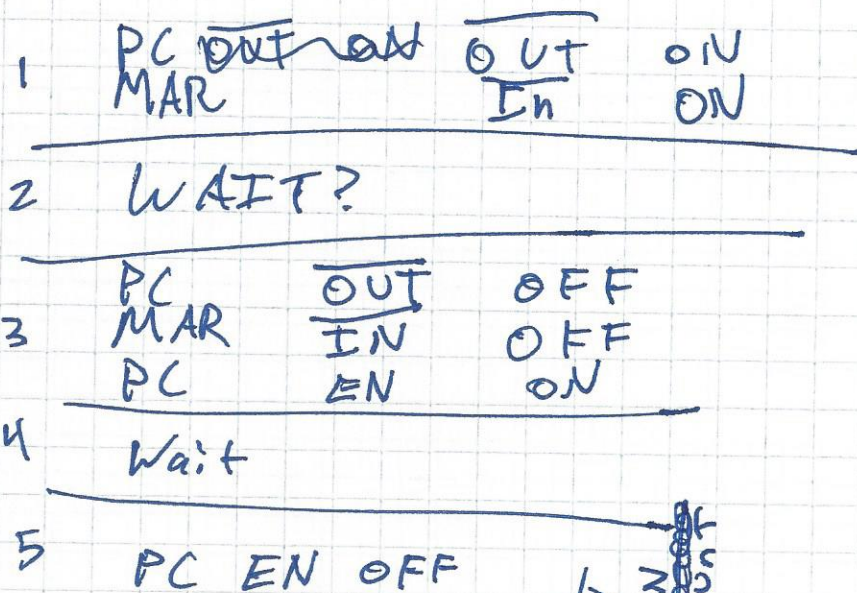 1 PC OUT ON OUT ON
MAR In ON
2 WAIT?
PC OUT OFF
3 MAR IN OFF
PC EN ON
4 Wait
5 PC EN OFF